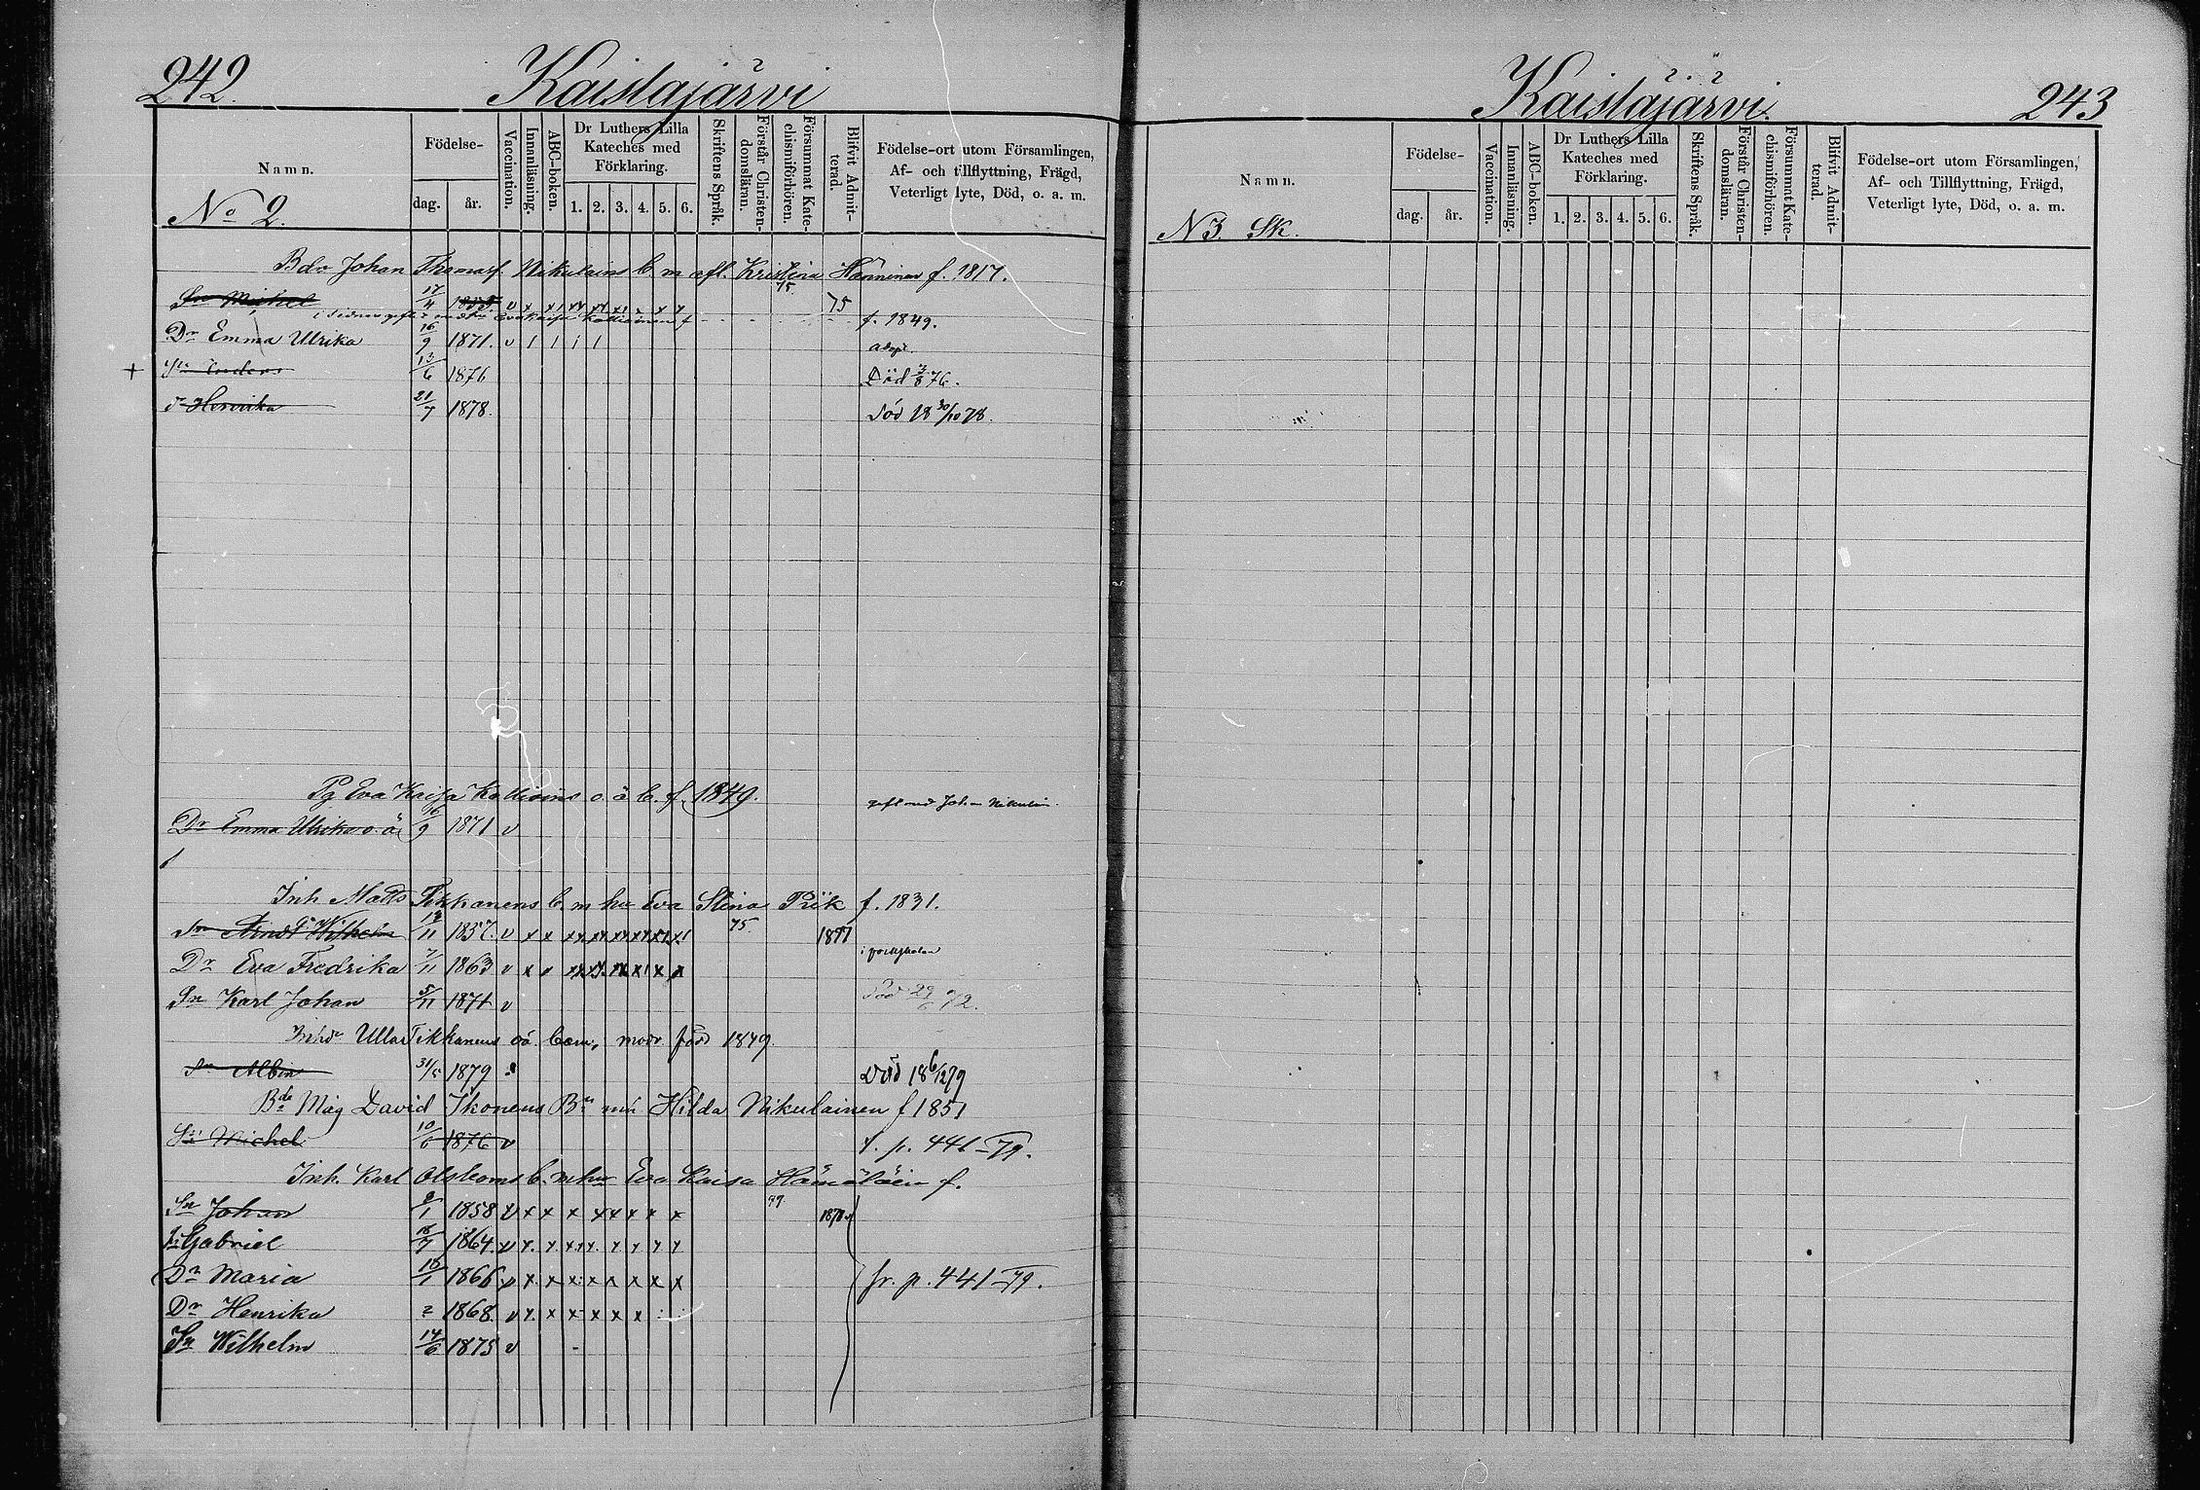 242. Kaislajärvi
Namn. Födelse- dag. år. Vaccination. Innanläsning. ABC-boken. Dr Luthers Lilla Kateches med Förklaring. 1. 2. 3. 4. 5. 6. Skriftens Språk. Förstår Christendomsläran. Försummat Katechismiförhören. Blifvit Admitterad. Födelse-ort utom Församlingen, Af- och tillflyttning, Frägd, Veterligt lyte, Död, o. a. m.
No 2.
Johan Thomasf. Nikulains b. m afl. Kristina Hänninen f. 1817.
Sn Michel 17/4 v 75 75
Eva Kaisa f. 1849.
Dr Emma Ulrika 16/9 1871. v
+ 13/6 1876 Död 76.
Henrika 21/7 1878. död 18 30/10 78.
Eva Kaisa o. ä b. f. 1849. Johan
Dr Emma Ulrika o. ä 16/9 1871 v
Inh. Matts Tikkanens b. m hu Eva Stina f. 1831.
Sn Wilhelm 1857. v x x 75. 1877
Dr Eva Fredrika 7/11 1863 v
Sn Karl Johan 5/11 1871 v
Ulla Tikkanens oä. barn, modr född 1849.
Sn Albin 31/5 1879 Död 18 6/12 79
Måg David Ikonens Bn Hilda Nikulainen f 1851
Sn Michel 10/6 1876 v p. 441-79.
Inh. Karl b. m hu Eva Kaisa f.
Sn Johan 1858 v x x x x x x x
Sn Gabriel 1864. v
Dr Maria 1866 v x x x x x x x x fr. p. 441-79.
Dr Henrika 2 1868. v x. x x x x x
Sn Wilhelm 14/6 1875 v
Kaislajärvi. 243
Namn. Födelse- dag. år. Vaccination. Innanläsning. ABC-boken. Dr Luthers Lilla Kateches med Förklaring. 1. 2. 3. 4. 5. 6. Skriftens Språk. Förstår Christendomsläran. Försummat Katechismiförhören. Blifvit Admitterad. Födelse-ort utom Församlingen, Af- och Tillflyttning, Frägd, Veterligt lyte, Död, o. a. m.
N 3. Sk.